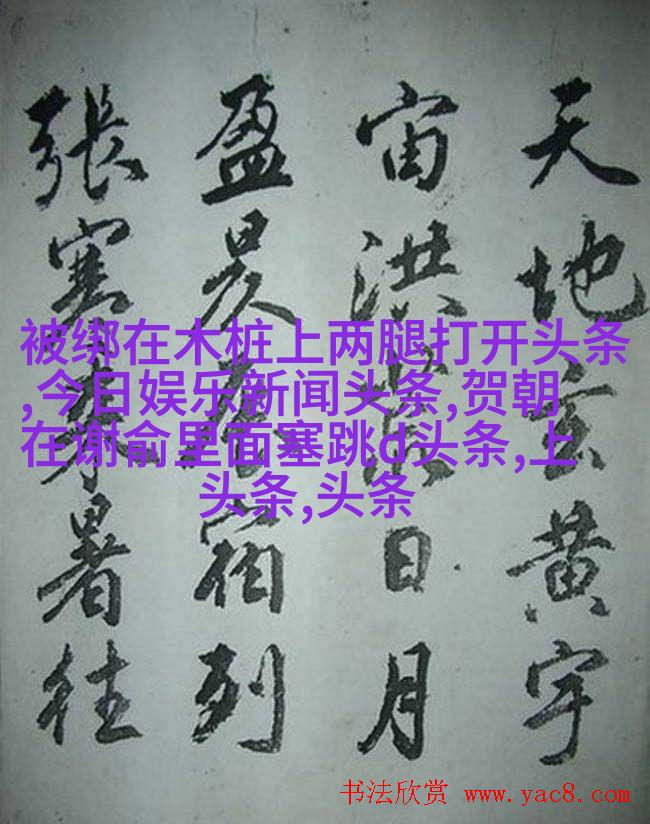 天地玄黄宇
宙洪荒日月
盈昃辰宿列
張寒来暑往
被绑在木桩上两腿打开头条
,今日娱乐新闻头条,贺朝
在谢俞里面塞跳d头条,上
头条,头条
书法欣赏 www.yac8.com